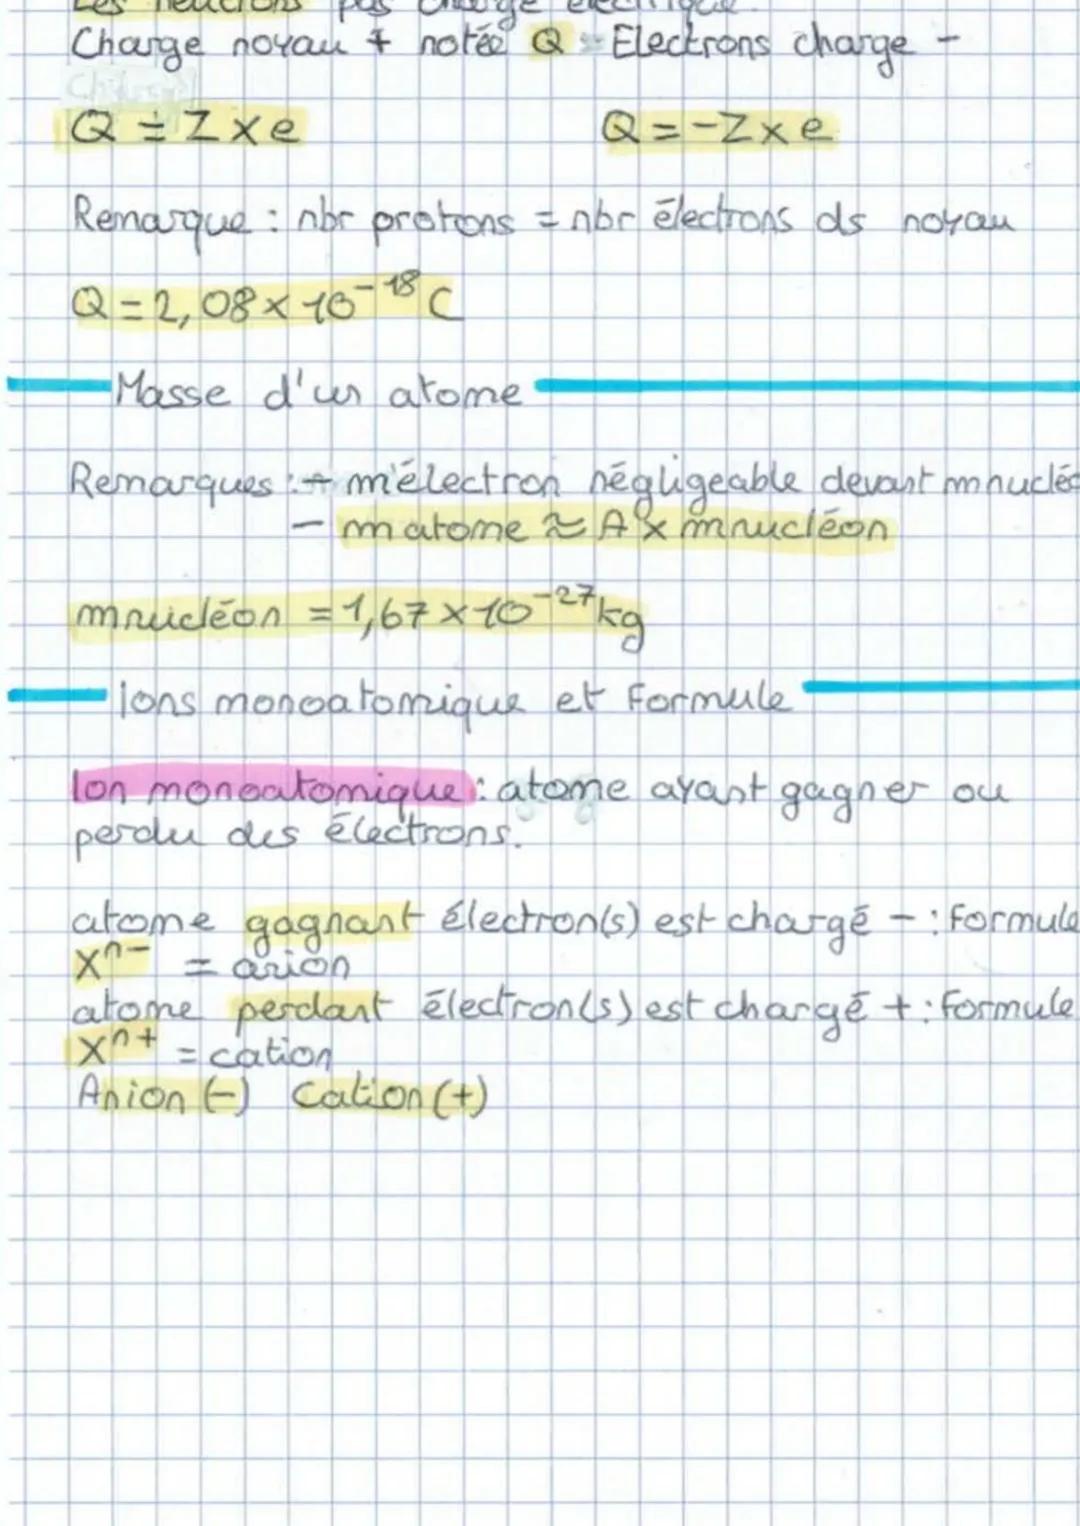 Les neutrons pas charge électrique.
Charge noyau + notée Q Electrons charge -
Q = Z x e Q = -Z x e
Remarque : nbr protons = nbr électrons ds noyau
Q = 2,08 x 10^-18 C
Masse d'un atome
Remarques : - m électron négligeable devant mnuclé
- m atome ≈ A x mnucléon
mnucléon = 1,67 x 10^-27 kg
Ions monoatomique et Formule
Ion monoatomique : atome ayant gagner ou
perdu des électrons.
atome gagnant électron(s) est chargé - : Formule
X^n- = anion
atome perdant électron(s) est chargé + : Formule
X^n+ = cation
Anion (-) Cation (+)